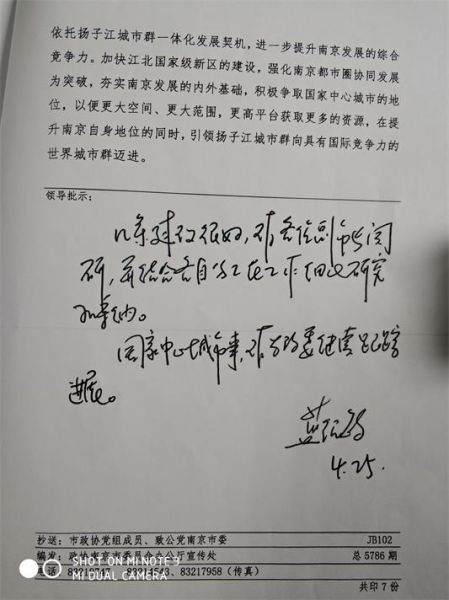 依托扬子江城市群一体化发展契机，进一步提升南京发展的综合
竞争力。加快江北国家级新区的建设，强化南京都市圈协同发展
为突破，夯实南京发展的内外基础，积极争取国家中心城市的地
位，以便更大空间、更大范围，更高平台获取更多的资源，在提
升南京自身地位的同时，引领扬子江城市群向具有国际竞争力的
世界城市群迈进。
领导批示：
几条建议很好，请各位副市长阅
研，并结合各自分工在工作中研究
采纳。
国家中心城市事，请发改委继续跟踪
进展。
蓝绍敏
4.25.
抄送：市政协党组成员、致公党南京市委 JB102
编发：政协南京市委员会办公厅宣传处 总 5786 期
电话 83219747 83214543、83217958（传真）
共印 7 份
SHOT ON MI NOTE 3
MI DUAL CAMERA